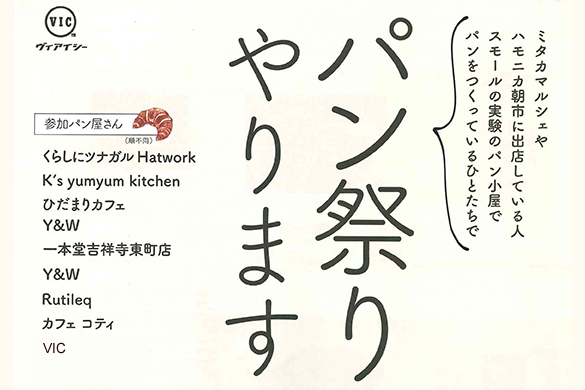 VIC
ヴィアイシー
ミタカマルシェや
ハモニカ朝市に出店している人
スモールの実験のパン小屋で
パンをつくっているひとたちで
パン祭り
やります
参加パン屋さん
(順不同)
くらしにツナガル Hatwork
K's yumyum kitchen
ひだまりカフェ
Y&W
一本堂吉祥寺東町店
Y&W
Rutileq
カフェ コティ
VIC